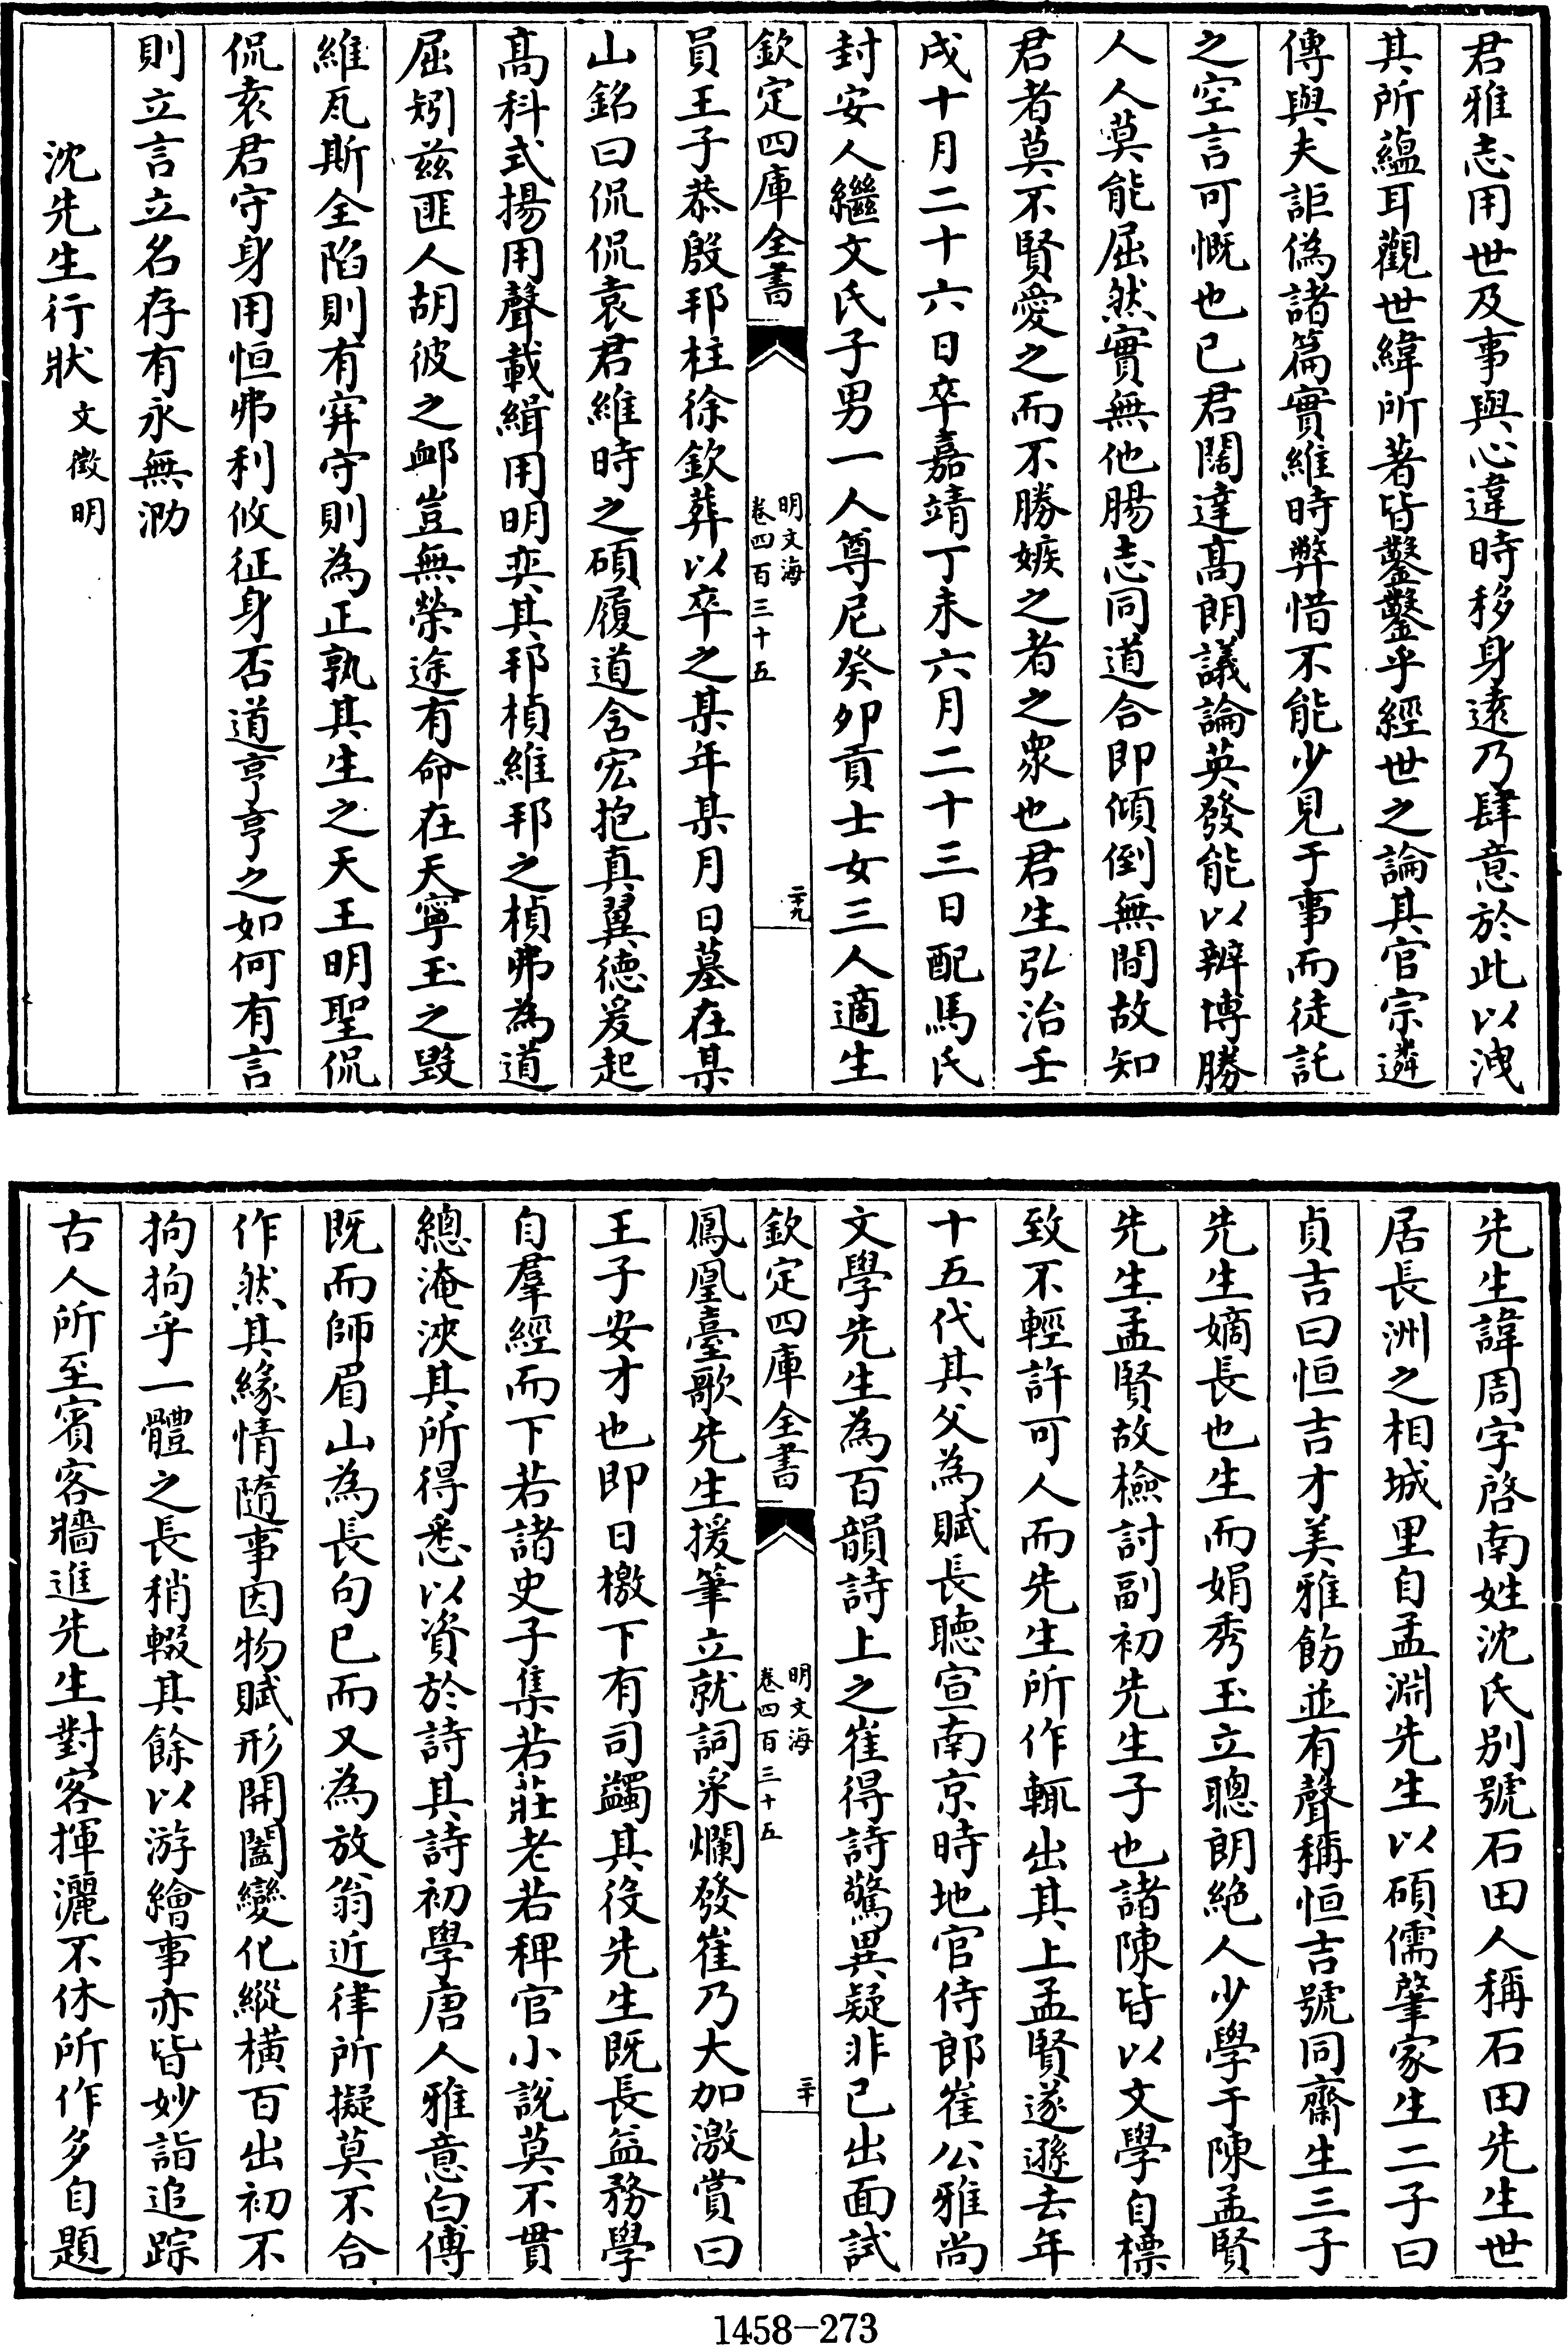 君雅志用世及事與心違時移身遠乃肆意於此以洩
其所蘊耳觀世緯所著皆鑿鑿乎經世之論其官宗遴
傳與夫詎偽諸篇實維時弊惜不能少見于事而徒託
之空言可慨也已君闊達高朗議論英發能以辨博勝
人人莫能屈然實無他腸志同道合即傾倒無間故知
君者莫不賢愛之而不勝嫉之者之衆也君生弘治壬
戌十月二十六日卒嘉靖丁未六月二十三日配馬氏
封安人繼文氏子男一人尊尼癸卯貢士女三人適生
欽定四庫全書
明文海
卷四百三十五
二十九
員王子恭殷邦柱徐欽葬以卒之某年某月日墓在某
山銘曰侃侃袁君維時之碩履道含宏抱真翼德爰起
髙科式揚用聲載緝用明奕其邦楨維邦之楨弗為道
屈矧茲匪人胡彼之卹豈無榮途有命在天寧玉之毀
維瓦斯全陷則有穽守則為正孰其生之天王明聖侃
侃袁君守身用恒弗利攸征身否道亨亨之如何有言
則立言立名存有永無泐
沈先生行狀
文徵明
先生諱周字啓南姓沈氏别號石田人稱石田先生世
居長洲之相城里自孟淵先生以碩儒肇家生二子曰
貞吉曰恒吉才美雅飭並有聲稱恒吉號同齋生三子
先生嫡長也生而娟秀玉立聰朗絶人少學于陳孟賢
先生孟賢故檢討副初先生子也諸陳皆以文學自標
致不輕許可人而先生所作輒出其上孟賢遂遜去年
十五代其父為賦長聽宣南京時地官侍郎崔公雅尚
文學先生為百韻詩上之崔得詩驚異疑非已出面試
欽定四庫全書
明文海
卷四百三十五
三十
鳳凰臺歌先生援筆立就詞采爛發崔乃大加激賞曰
王子安才也即日檄下有司蠲其役先生既長益務學
自羣經而下若諸史子集若莊老若稗官小說莫不貫
總淹浹其所得悉以資於詩其詩初學唐人雅意白傅
既而師眉山為長句已而又為放翁近律所擬莫不合
作然其緣情隨事因物賦形開闔變化縱横百出初不
拘拘乎一體之長稍輟其餘以游繪事亦皆妙詣追踪
古人所至賓客牆進先生對客揮灑不休所作多自題
1458-273